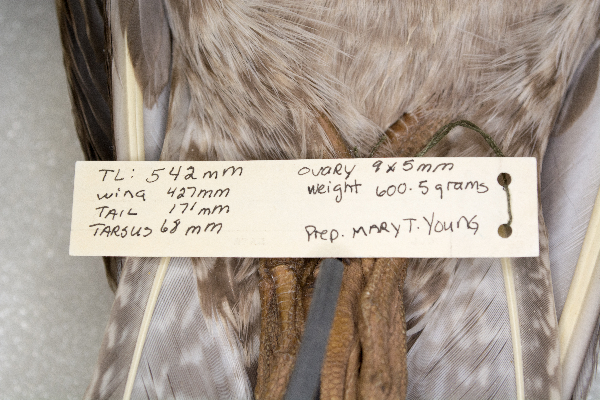 TL: 542 mm
wing 427mm
TAIL 171mm
TARSUS 68 mm
OVARY 9 x 5mm
weight 600.5 grams
Prep. MARY T. YOUNG